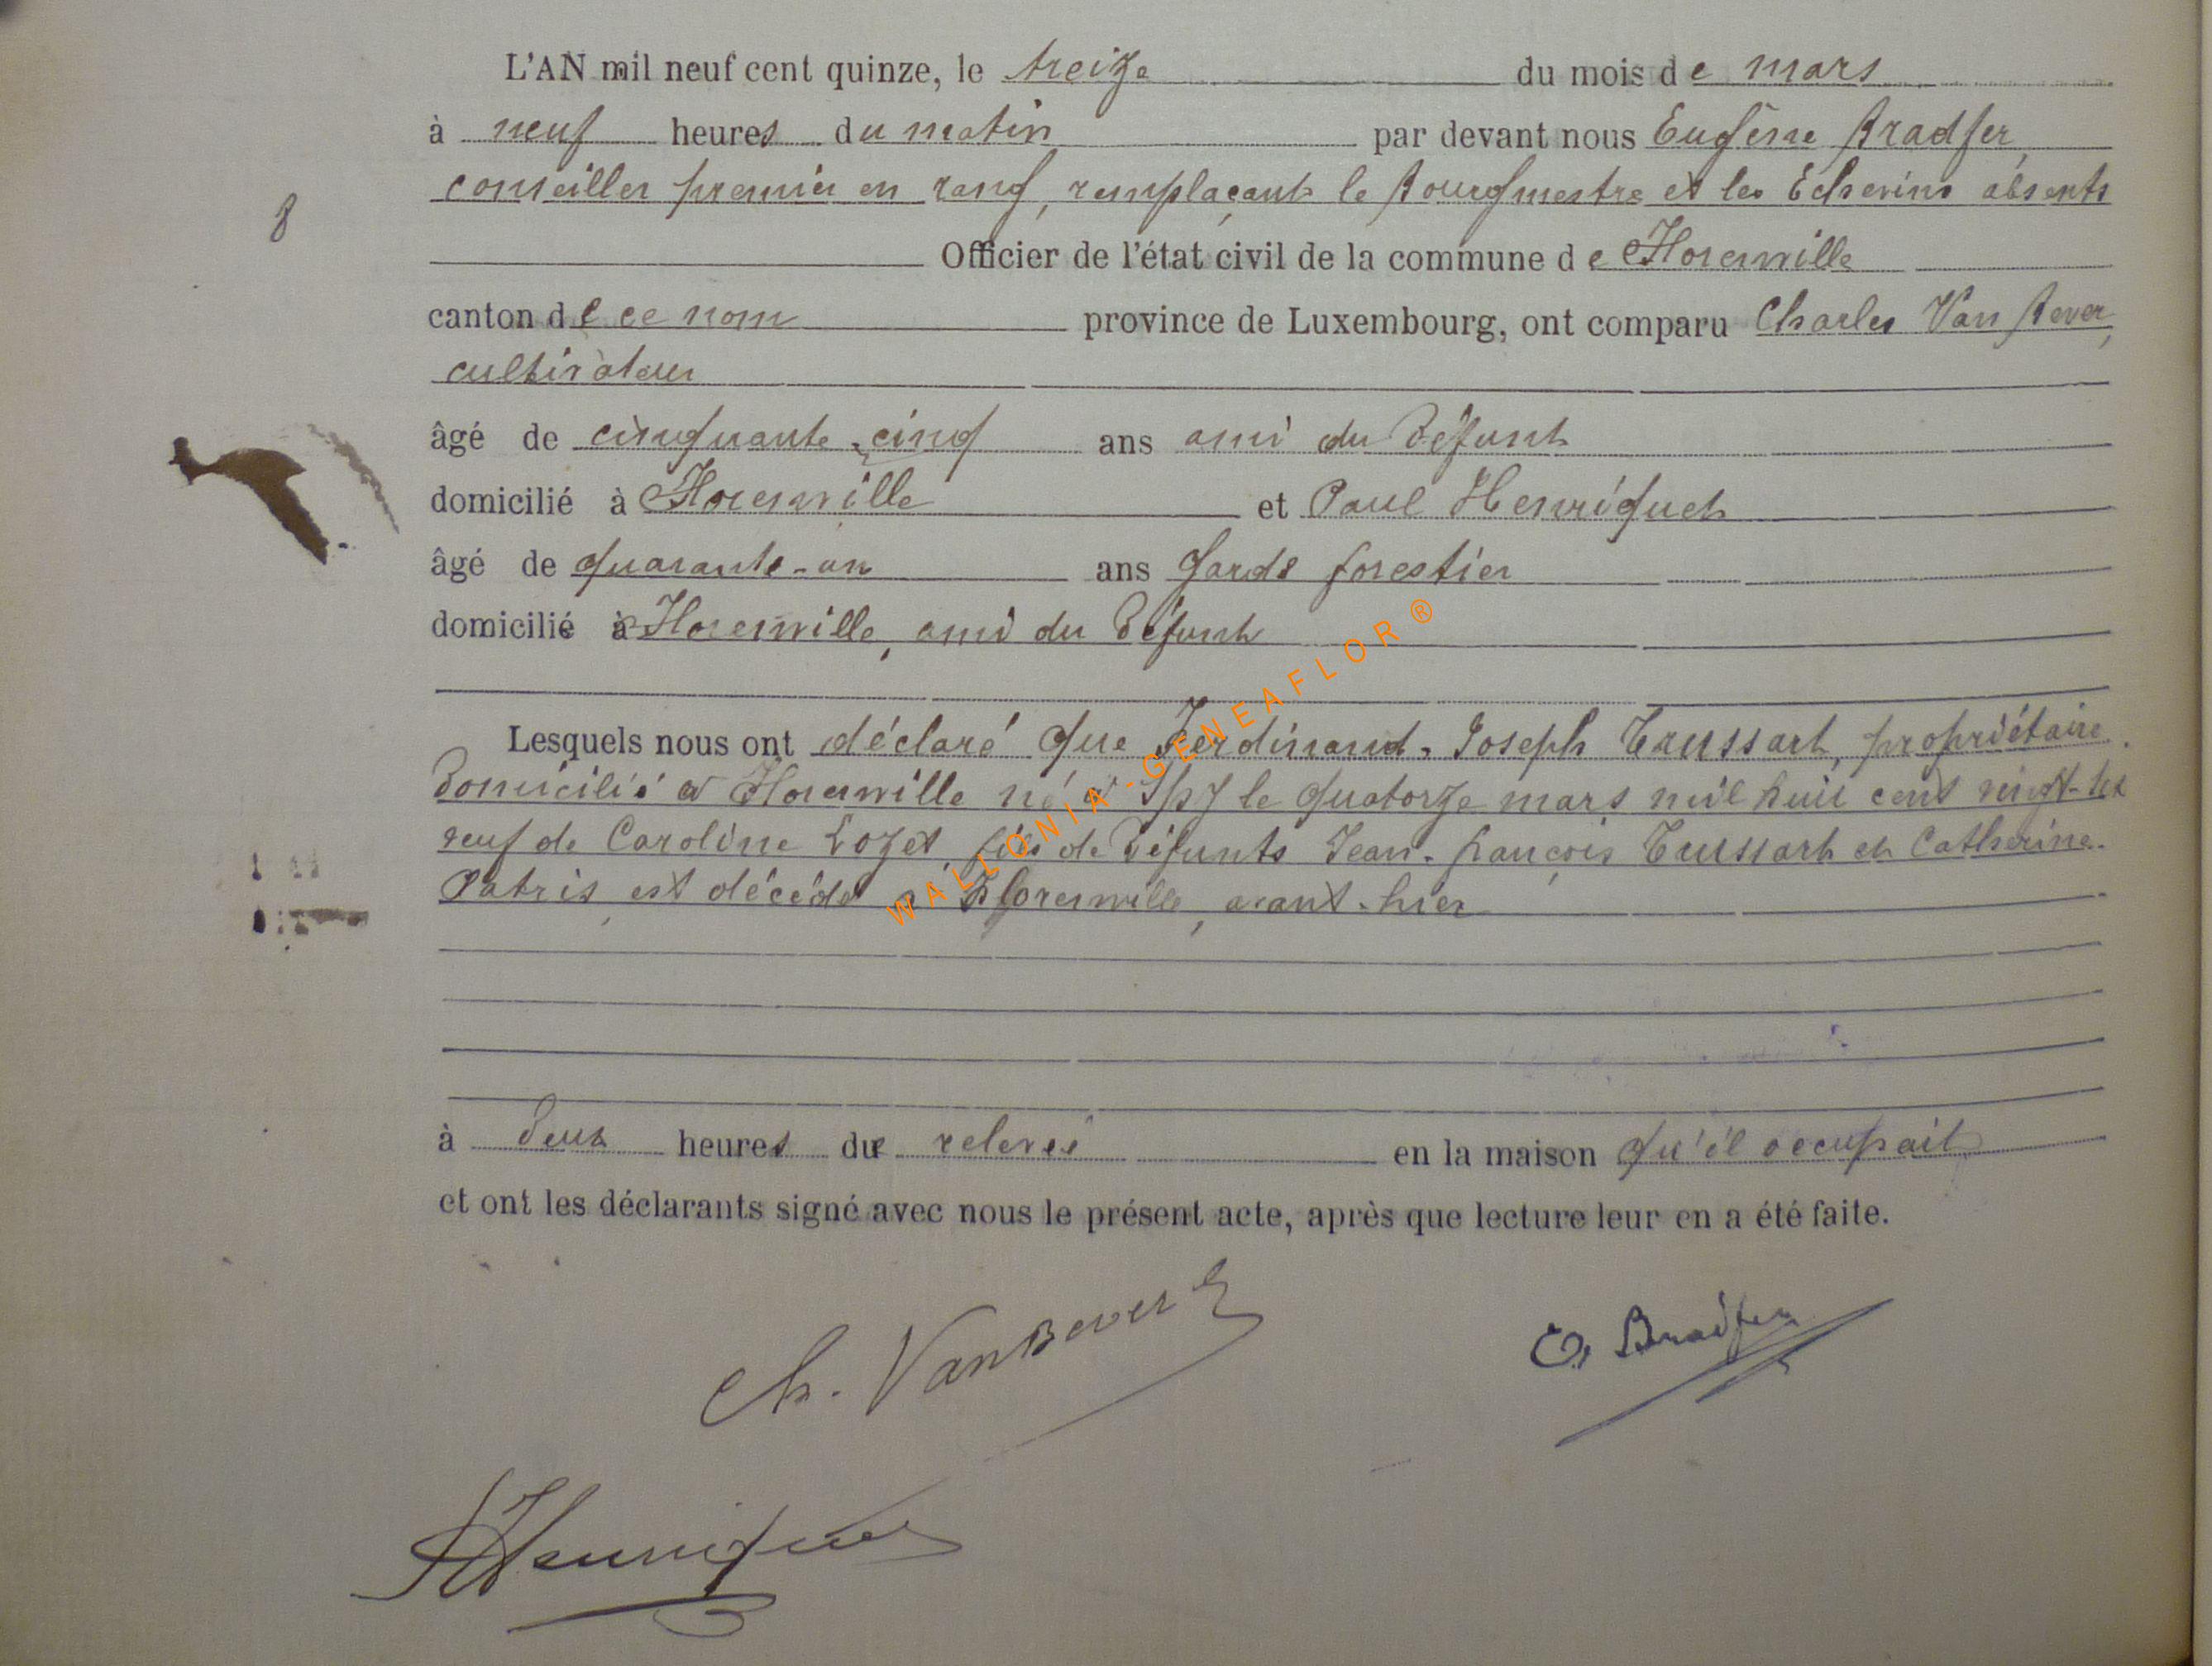 L'AN mil neuf cent quinze, le treize du mois de mars
à neuf heures du matin par devant nous Eugène Bradfer,
conseiller premier en rang, remplaçant le Bourgmestre et les Echevins absents
8
Officier de l'état civil de la commune de Florenville
canton de ce nom province de Luxembourg, ont comparu Charles Van Bever,
cultivateur
âgé de cinquante-cinq ans ami du défunt
domicilié à Florenville et Paul Henriquet
âgé de quarante-un ans garde forestier
domicilié à Florenville, ami du défunt
Lesquels nous ont déclaré que Ferdinand-Joseph Trussart, propriétaire
domicilié à Florenville né à Spy le quatorze mars mil huit cent vingt-
veuf de Caroline Lozet, fils de défunts Jean-François Trussart et Catherine
Patris, est décédé à Florenville, avant-hier
WALLONIA-GENEAFLOR®
à deux heures de relevée en la maison qu'il occupait
et ont les déclarants signé avec nous le présent acte, après que lecture leur en a été faite.
Ch. VanBever
E. Bradfer
Henriquet